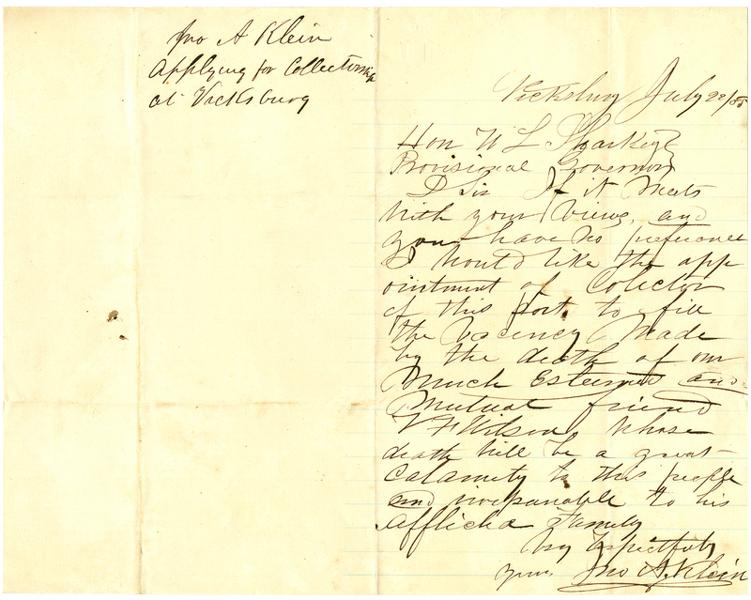 Jno A Klein
Applying for Collectorship
at Vicksburg
Vicksburg July 28/65
Hon W L Sharkey
Provisional Governor
D Sir If it meets
with your views, and
you have no preference
I would like the app
ointment of Colector
of this Port to fill
the Vacency made
by the death of our
Much Esteemed and
Mutual friend
V F Wilson, whose
death will be a great
calamity to this people
and irreparable to his
Afflicted Family
Very Respectfully
yours Jno A. Klein